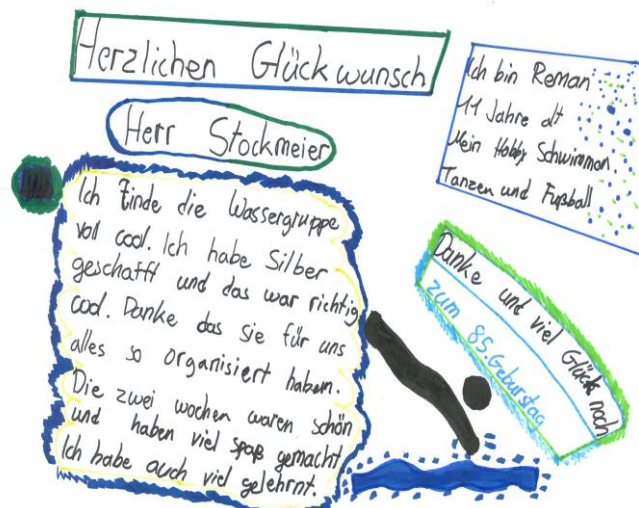 Herzlichen Glückwunsch
Herr Stockmeier
Ich bin Reman
11 Jahre alt
Mein Hobby Schwimmen.
Tanzen und Fußball
Ich Finde die Wassergruppe
voll cool. Ich habe Silber
geschafft und das war richtig
cool. Danke das sie für uns
alles so organisiert haben.
Die zwei wochen waren schön
und haben viel spaß gemacht
Ich habe auch viel gelehrnt.
Danke und viel Glück noch
zum 85. Geburstag